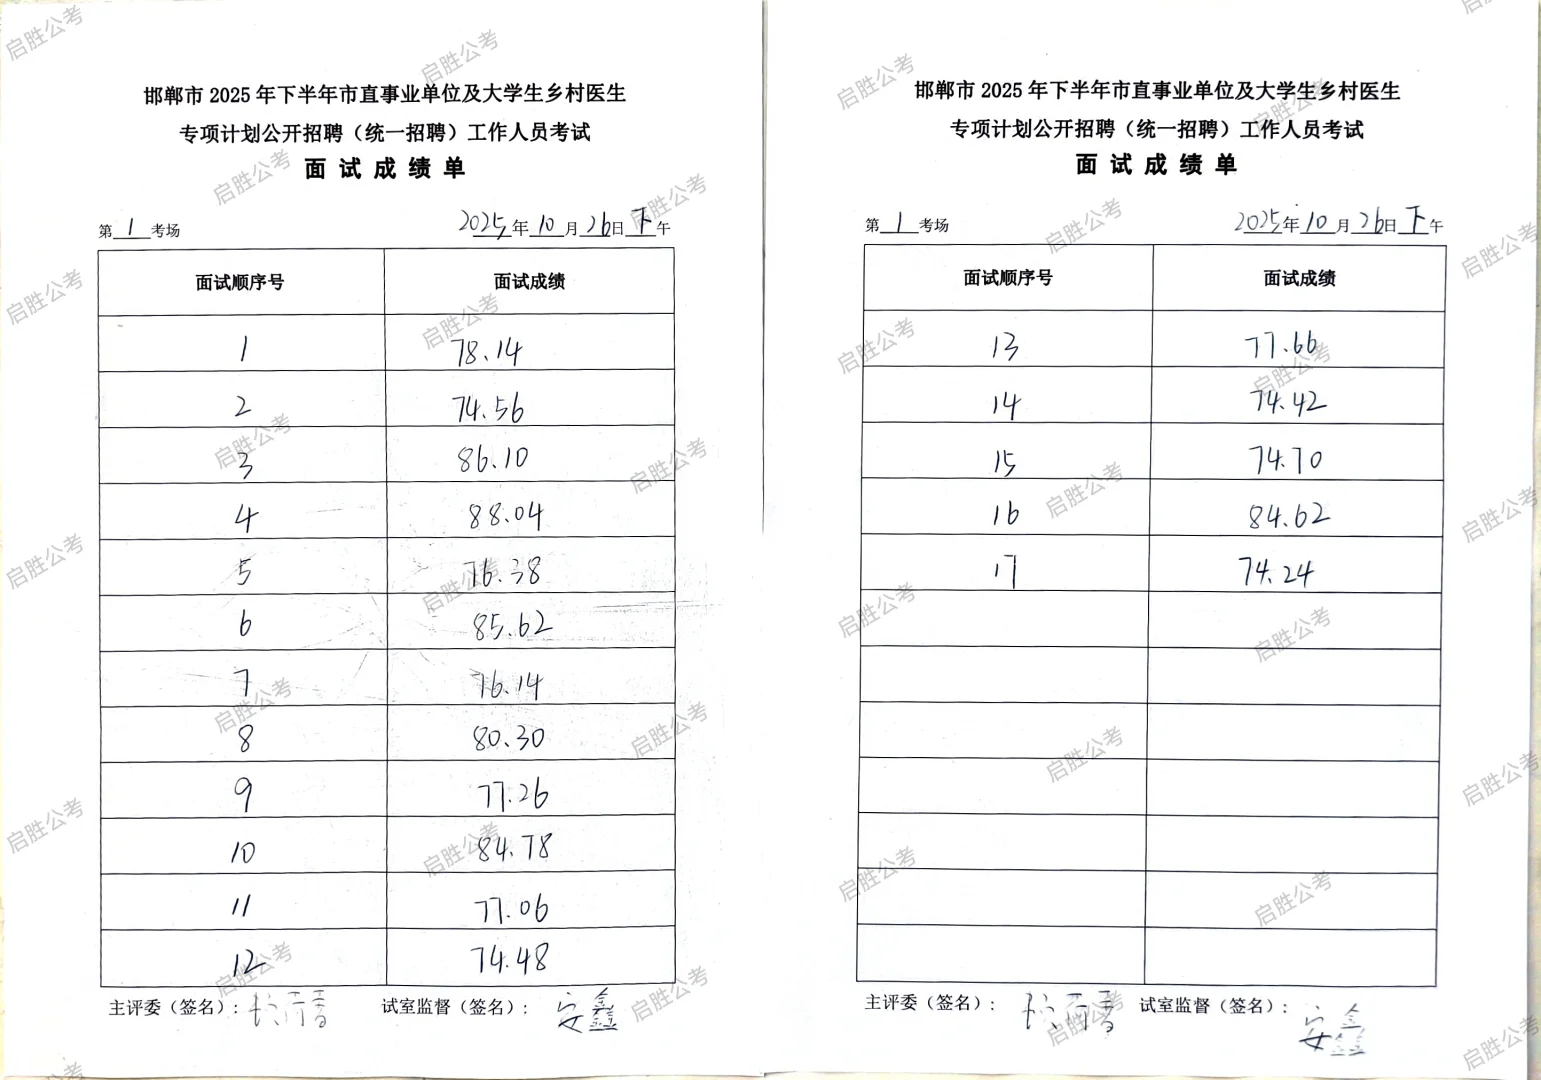 邯郸市 2025 年下半年市直事业单位及大学生乡村医生
专项计划公开招聘（统一招聘）工作人员考试
面试成绩单
第 1 考场 2025 年 10 月 26 日 下 午
面试顺序号 面试成绩
1 78.14
2 74.56
3 86.10
4 88.04
5 76.38
6 85.62
7 76.14
8 80.30
9 77.26
10 84.78
11 77.06
12 74.48
主评委（签名）： 试室监督（签名）： 安鑫
邯郸市 2025 年下半年市直事业单位及大学生乡村医生
专项计划公开招聘（统一招聘）工作人员考试
面试成绩单
第 1 考场 2025 年 10 月 26 日 下 午
面试顺序号 面试成绩
13 77.66
14 74.42
15 74.70
16 84.62
17 74.24
主评委（签名）： 试室监督（签名）： 安鑫
启胜公考